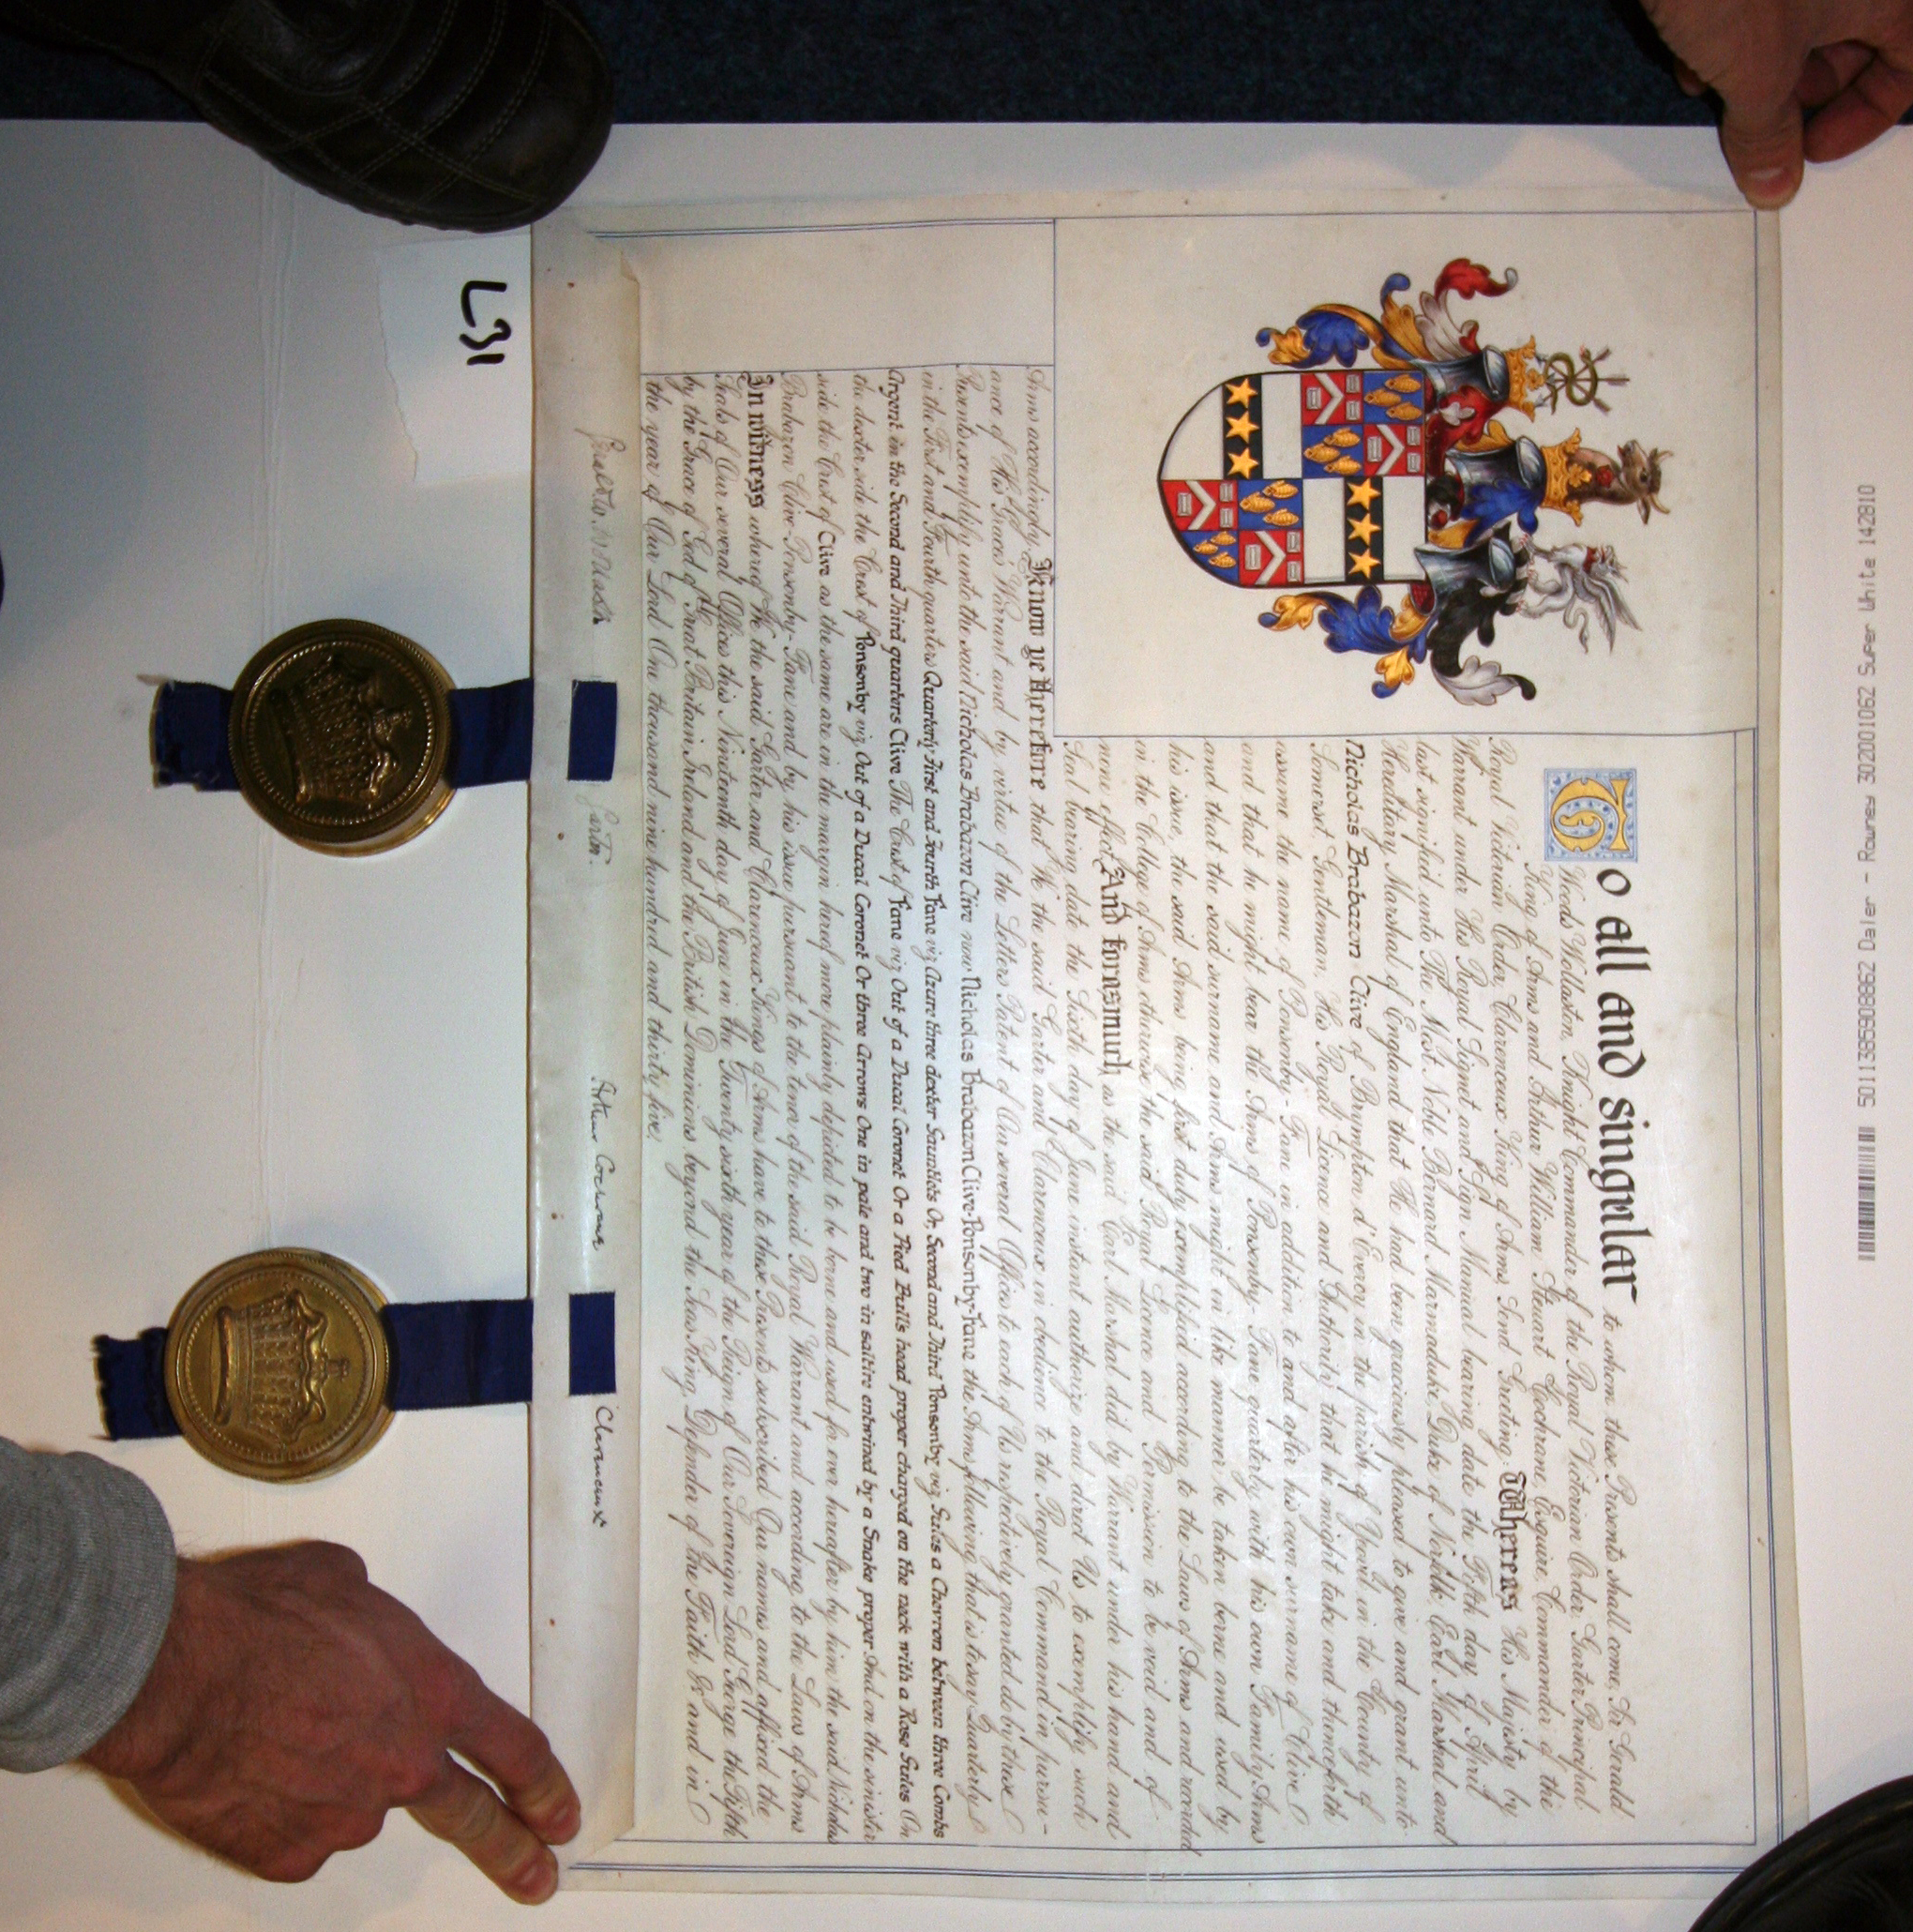 To all and singular to whom these Presents shall come, Sir Gerald
Woods Wollaston, Knight Commander of the Royal Victorian Order, Garter Principal
King of Arms and Arthur William Steuart Cochrane, Esquire, Commander of the
Royal Victorian Order, Clarenceux King of Arms, Send Greeting: Whereas His Majesty by
Warrant under His Royal Signet and Sign Manual bearing date the Fifth day of April
last signified unto The Most Noble Bernard Marmaduke, Duke of Norfolk, Earl Marshal and
Hereditary Marshal of England that He had been graciously pleased to give and grant unto
Nicholas Brabazon Clive of Brympton d'Evercy in the parish of Yeovil in the County of
Somerset, Gentleman, His Royal Licence and Authority that he might take and thenceforth
assume the name of Ponsonby-Fane in addition to and after his own surname of Clive
and that he might bear the Arms of Ponsonby-Fane quarterly with his own Family Arms
and that the said surname and Arms might in like manner be taken borne and used by
his issue, the said Arms being first duly exemplified according to the Laws of Arms and recorded
in the College of Arms otherwise the said Royal Licence and Permission to be void and of
none effect And forasmuch as the said Earl Marshal did by Warrant under his hand and
Seal bearing date the Sixth day of June instant authorize and direct Us to exemplify such
Arms accordingly Know ye therefore that We the said Garter and Clarenceux in obedience to the Royal Command in pursu-
ance of His Grace's Warrant and by virtue of the Letters Patent of Our several Offices to each of Us respectively granted do by these
Presents exemplify unto the said Nicholas Brabazon Clive now Nicholas Brabazon Clive-Ponsonby-Fane the Arms following that is to say Quarterly
in the First and Fourth quarters Quarterly First and Fourth Fane viz Azure three dexter Gauntlets Or, Second and Third Ponsonby viz Gules a Chevron between three Combs
Argent in the Second and Third quarters Clive The Crest of Fane viz Out of a Ducal Coronet Or a Pied Bulls head proper charged on the neck with a Rose Gules On
the dexter side the Crest of Ponsonby viz Out of a Ducal Coronet Or three Arrows One in pale and two in saltire entwined by a Snake proper And on the sinister
side the Crest of Clive as the same are in the margin hereof more plainly depicted to be borne and used for ever hereafter by him the said Nicholas
Brabazon Clive-Ponsonby-Fane and by his issue pursuant to the tenor of the said Royal Warrant and according to the Laws of Arms
In witness whereof We the said Garter and Clarenceux Kings of Arms have to these Presents subscribed Our names and affixed the
Seals of Our several Offices this Nineteenth day of June in the Twenty sixth year of the Reign of Our Sovereign Lord George the Fifth
by the Grace of God of Great Britain, Ireland and the British Dominions beyond the Seas King, Defender of the Faith &c and in
the year of Our Lord One thousand nine hundred and thirty five.
Gerald W. Wollaston Garter. Arthur Cochrane Clarenceux
L31
5011386908962 Daler - Rowney 302001062 Super White 142810